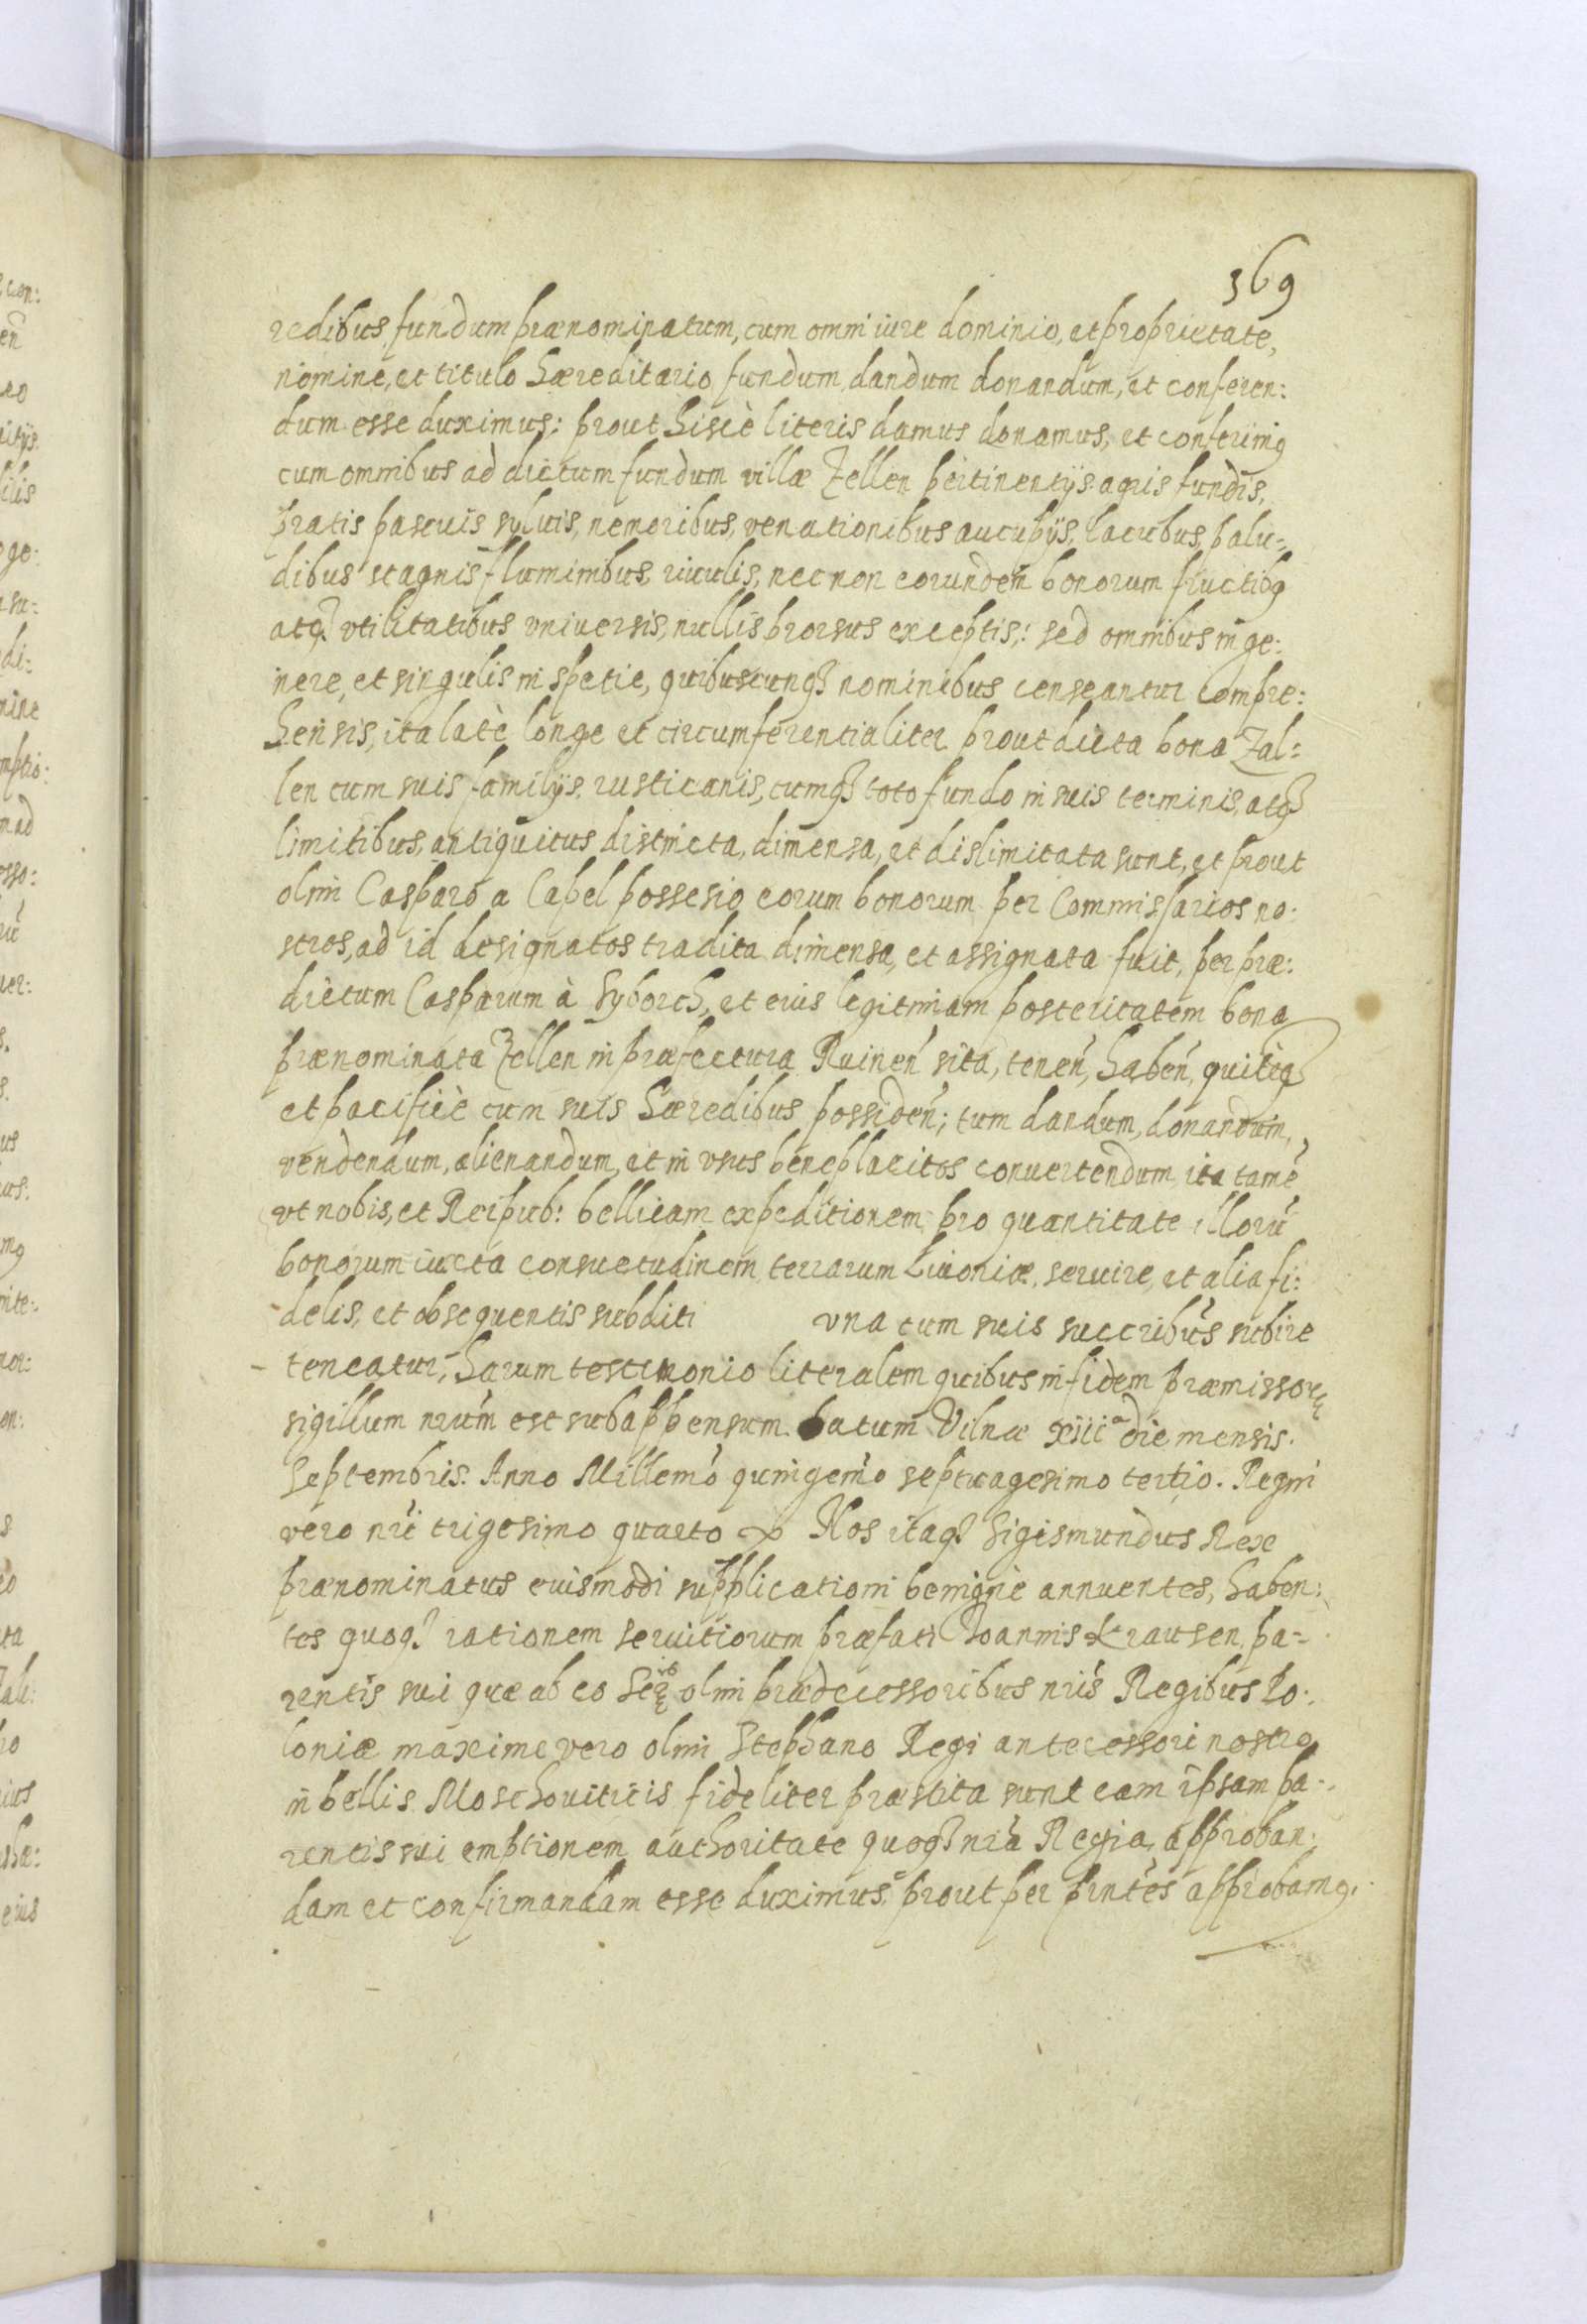 369
redibus, fundum prænominatum, cum omni iure dominio, et proprietate,
nomine, et titulo hæreditario fundum, dandum donandum, et conferen:
dum esse duximus: prout hisce literis damus donamus, et conferimꝰ
cum omnibus ad dictum fundum villæ Zellen pertinentijs agris fundis,
pratis pascuis syluis, nemoribus, venationibus aucupijs, lacubus, palu:
dibus stagnis fluminibus, riuulis, necnon eorundem bonorum fructibꝰ
atqꝫ vtilitatibus vniuersis, nullis prorsus exceptis,: sed omnibus in ge:
nere, et singulis in spetie, quibuscunqꝫ nominibus censeantur compre:
hensis, ita latè longe et circumferentialiter prout dicta bona Zal:
len cum suis familijs, rusticanis, cumqꝫ toto fundo in suis terminis, atqꝫ
limitibus, antiquitus districta, dimensa, et dislimitata sunt, et prout
olim Casparo a Capel possesio eorum bonorum per Commissarios no:
stros, ad id designatos tradita dimensa, et assignata fuit, per præ:
dictum Casparum à Syborch, et eius legitimam posteritatem bona
prænominata Zellen in præfectura Ruineń sita, teneń, habeń, quiteqꝫ
et pacificè cum suis hæredibus possideń; tum dandum, donandum,
vendendum, alienandum, et in vsus beneplacitos conuertendum, ita tamē
vt nobis, et Reipub: bellicam expeditionem pro quantitate illorū
bonorum iuxta consuetudinem terrarum Liuoniæ, seruire, et alia fi:
delis, et obsequentis subditi una cum suis succribus subire
teneatur, harum testimonio literalem quibus in fidem præmissorꝝ
sigillum nrum est subappensum. Datum Vilnæ xiii a die mensis
Septembris. Anno Millemo quingemo septuagesimo tertio. Regni
vero nri trigesimo quarto Nos itaqꝫ Sigismundus Rex
prænominatus euismodi supplicationi benignè annuentes, haben:
tes quoqꝫ rationem seruitiorum præfati Joannis Krausen, pa:
rentis sui quæ ab eo olim prædecessoribus nris Regibus Po:
loniæ maxime vero olim Stephano Regi antecessori nostro
in bellis Moschouiticis fideliter præstita sunt eam ipsam pa:
rentis sui emptionem authoritate quoqꝫ nra Regia, approban:
dam et confirmandam esse duximus, prout per pntes approbamꝰ.